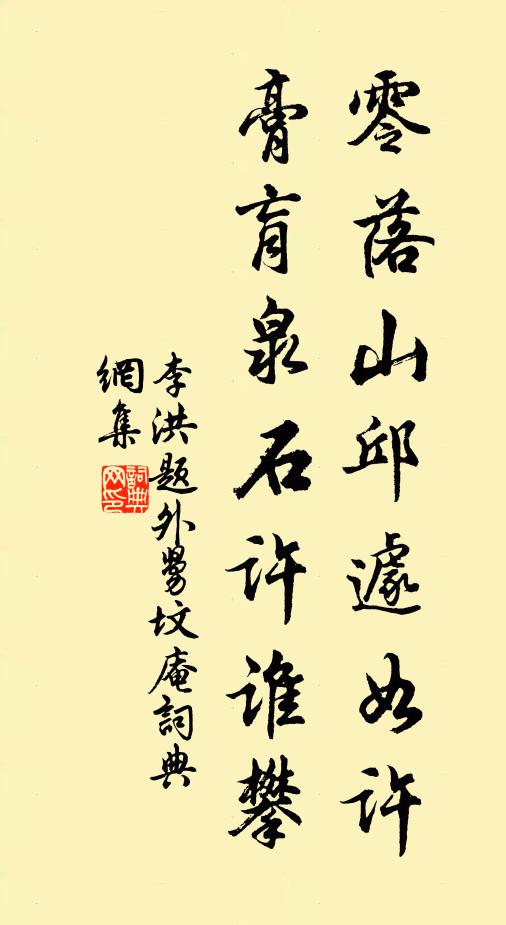 零落山邱遽如許
膏肓泉石許誰攀
李洪題外舅坟庵詞典
網集
詞典網印